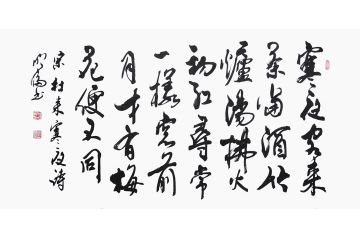 寒夜客来
茶当酒竹
爐湯沸火
初红尋常
一樣窗前
月才有梅
花便不同
宋杜耒寒夜诗